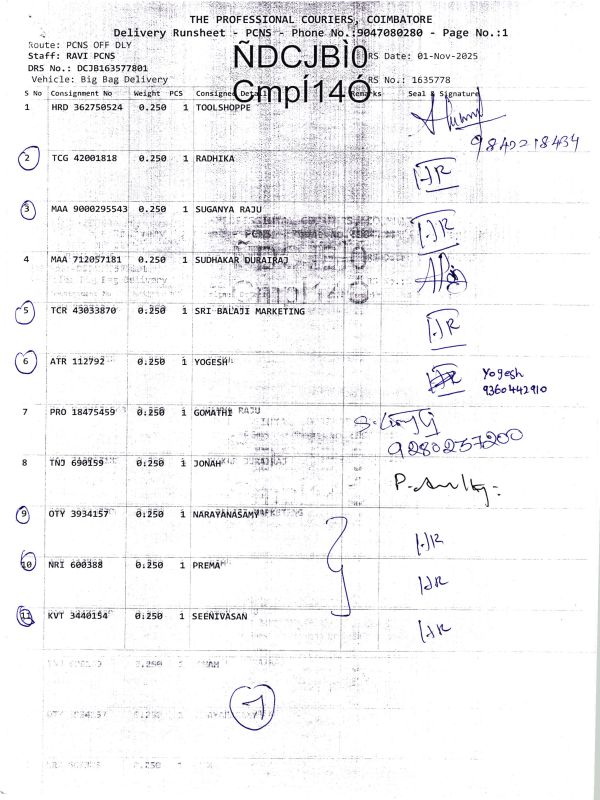 THE PROFESSIONAL COURIERS, COIMBATORE
Delivery Runsheet - PCNS - Phone No.:9047080280 - Page No.:1
Route: PCNS OFF DLY
ÑDCJBÌ0
Staff: RAVI PCNS
RS Date: 01-Nov-2025
DRS No.: DCJB163577801
Vehicle: Big Bag Delivery
RS No.: 1635778
CmpÍ14Ó
S No Consignment No Weight PCS Consignee Details Remarks Seal & Signature
1 HRD 362750524 0.250 1 TOOLSHOPPE
9842218434
2 TCG 42001818 0.250 1 RADHIKA
HR
3 MAA 9000295543 0.250 1 SUGANYA RAJU
HR
4 MAA 712057181 0.250 1 SUDHAKAR DURAIRAJ
5 TCR 43033870 0.250 1 SRI BALAJI MARKETING
HR
6 ATR 112792 0.250 1 YOGESH
HR Yogesh
9360442910
7 PRO 18475459 0.250 1 GOMATHI
9280257200
8 TNJ 690159 0.250 1 JONAH
9 OTY 3934157 0.250 1 NARAYANASAMY
HR
10 NRI 600388 0.250 1 PREMA
HR
11 KVT 3440154 0.250 1 SEENIVASAN
HR
7